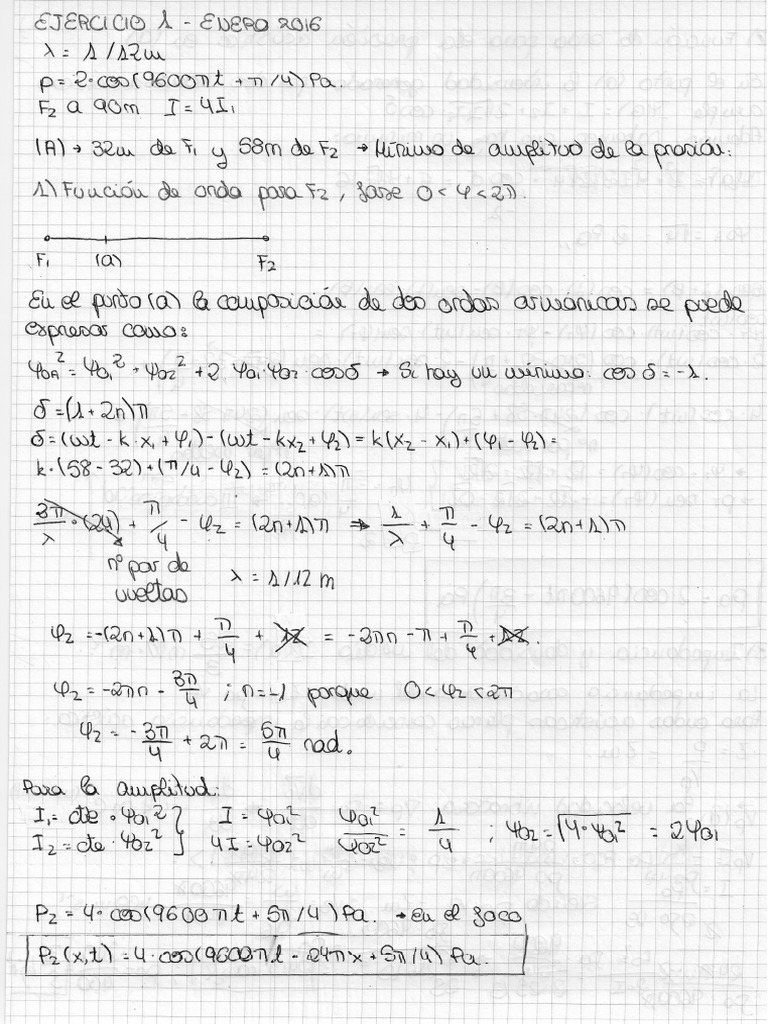 EJERCICIO 1 - ENERO 2016
λ = 1/12m
p = 2·cos(9600πt + π/4) Pa.
F₂ a 90m I = 4I₁
(A) → 32m de F₁ y 58m de F₂ → Mínimo de amplitud de la presión:
1) Función de onda para F₂, fase 0<φ<2π.
F₁ (a) F₂
En el punto (a) la composición de dos ondas armónicas se puede
expresar como:
ψ₀ₐ² = ψ₀₁² + ψ₀₂² + 2 ψ₀₁·ψ₀₂·cosδ → Si hay un mínimo: cos δ = -1.
δ = (1 + 2n)π
δ = (ωt - k·x₁ + φ₁) - (ωt - kx₂ + φ₂) = k(x₂ - x₁) + (φ₁ - φ₂) =
k·(58 - 32) + (π/4 - φ₂) = (2n+1)π
+ π/4 - φ₂ = (2n+1)π ⇒ 1/λ + π/4 - φ₂ = (2n+1)π
nº par de
vueltas λ = 1/12 m
φ₂ = -(2n+1)π + π/4 + = -2πn - π + π/4 +
φ₂ = -2πn - 3π/4 ; n=-1 porque 0<φ₂<2π
φ₂ = -3π/4 + 2π = 5π/4 rad.
Para la amplitud:
I₁ = cte · ψ₀₁² } I = ψ₀₁² ψ₀₁²/ψ₀₂² = 1/4 ; ψ₀₂ = √(4·ψ₀₁²) = 2ψ₀₁
I₂ = cte · ψ₀₂² } 4I = ψ₀₂²
P₂ = 4·cos(9600πt + 5π/4) Pa. → en el foco
P₂(x,t) = 4·cos(9600πt - 24πx + 5π/4) Pa.